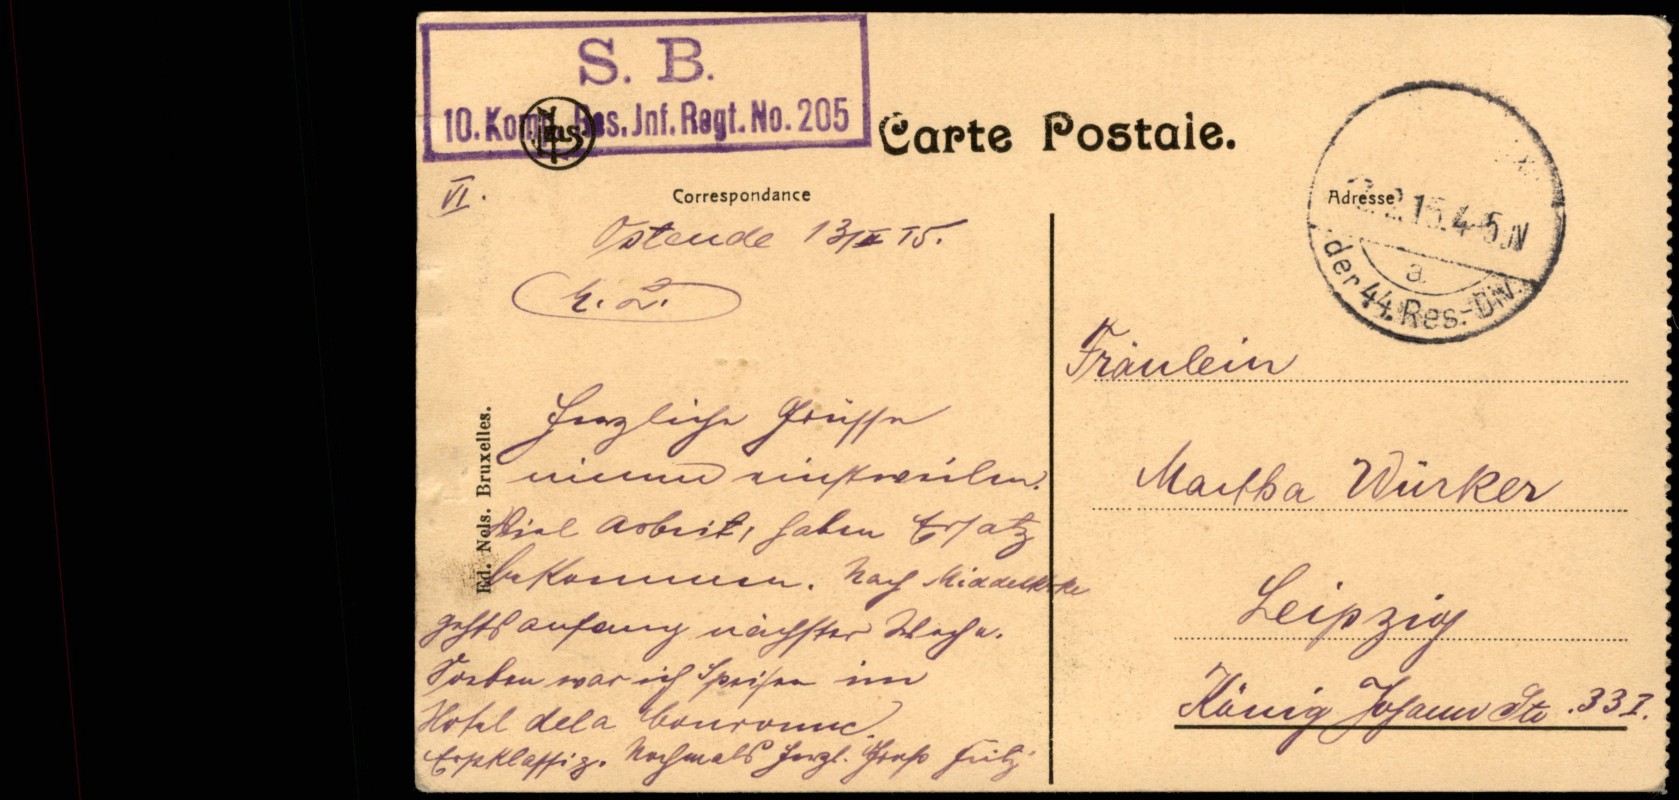 S. B.
10. Komp. Res. Inf. Regt. No. 205
Nels
Carte Postale.
VI.
Correspondance
Adresse
Ostende 13/II 15.
15.4-5 N
a
der 44. Res.-Div.
L. L.
Fräulein
Herzliche Grüsse
nimm einstweilen.
Martha Würker
Viel Arbeit, haben Ersatz
bekommen. Nach Middelkerke
Leipzig
gehts anfang nächster Woche.
Soeben war ich Speisen im
König Johann Str. 33 I.
Hotel de la Couronne.
Erstklassig. Nochmals herzl. Gruß Fritz
Ed. Nels. Bruxelles.